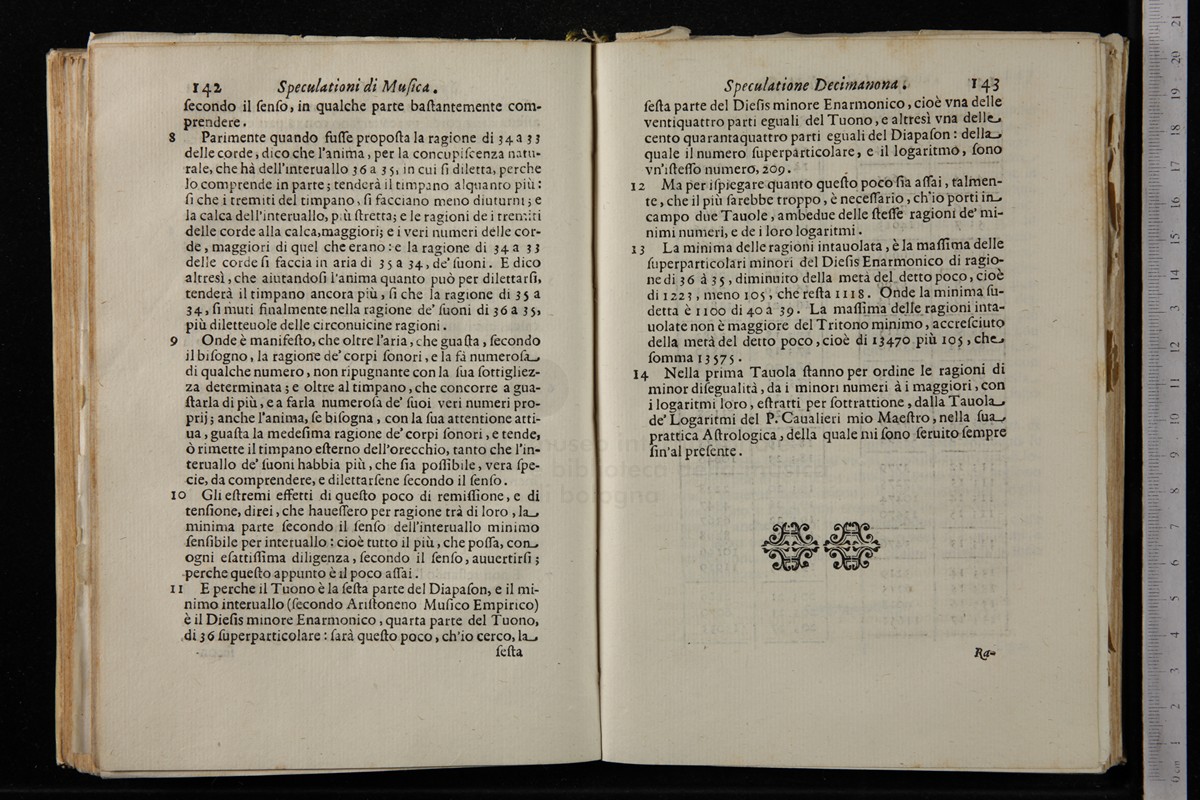 142 Speculationi di Musica.
ſecondo il ſenſo, in qualche parte baſtantemente com-
prendere.
8 Parimente quando fuſſe propoſta la ragione di 34 a 33
delle corde, dico che l'anima, per la concupiſcenza natu-
rale, che hà dell'interuallo 36 a 35, in cui ſi diletta, perche
lo comprende in parte; tenderà il timpano alquanto più:
ſi che i tremiti del timpano, ſi facciano meno diuturni; e
la calca dell'interuallo, più ſtretta; e le ragioni de i tremiti
delle corde alla calca, maggiori; e i veri numeri delle cor-
de, maggiori di quel che erano: e la ragione di 34 a 33
delle corde ſi faccia in aria di 35 a 34, de' ſuoni. E dico
altresì, che aiutandoſi l'anima quanto può per dilettarſi,
tenderà il timpano ancora più, ſi che la ragione di 35 a
34, ſi muti finalmente nella ragione de' ſuoni di 36 a 35,
più diletteuole delle circonuicine ragioni.
9 Onde è manifeſto, che oltre l'aria, che guaſta, ſecondo
il biſogno, la ragione de' corpi ſonori, e la fà numeroſa
di qualche numero, non ripugnante con la ſua ſottigliez-
za determinata; e oltre al timpano, che concorre a gua-
ſtarla di più, e a farla numeroſa de' ſuoi veri numeri pro-
prij; anche l'anima, ſe biſogna, con la ſua attentione atti-
ua, guaſta la medeſima ragione de' corpi ſonori, e tende,
ò rimette il timpano eſterno dell'orecchio, tanto che l'in-
teruallo de' ſuoni habbia più, che ſia poſſibile, vera ſpe-
cie, da comprendere, e dilettarſene ſecondo il ſenſo.
10 Gli eſtremi effetti di queſto poco di remiſſione, e di
tenſione, direi, che haueſſero per ragione trà di loro, la
minima parte ſecondo il ſenſo dell'interuallo minimo
ſenſibile per interuallo: cioè tutto il più, che poſſa, con
ogni eſattiſſima diligenza, ſecondo il ſenſo, auuertirſi;
perche queſto appunto è il poco aſſai.
11 E perche il Tuono è la ſeſta parte del Diapaſon, e il mi-
nimo interuallo (ſecondo Ariſtoneno Muſico Empirico)
è il Dieſis minore Enarmonico, quarta parte del Tuono,
di 36 ſuperparticolare: ſarà queſto poco, ch'io cerco, la
ſeſta
Speculatione Decimanona. 143
ſeſta parte del Dieſis minore Enarmonico, cioè vna delle
ventiquattro parti eguali del Tuono, e altresì vna delle
cento quarantaquattro parti eguali del Diapaſon: della
quale il numero ſuperparticolare, e il logaritmo, ſono
vn'iſteſſo numero, 209.
12 Ma per iſpiegare quanto queſto poco ſia aſſai, talmen-
te, che il più ſarebbe troppo, è neceſſario, ch'io porti in
campo due Tauole, ambedue delle ſteſſe ragioni de' mi-
nimi numeri, e de i loro logaritmi.
13 La minima delle ragioni intauolata, è la maſſima delle
ſuperparticolari minori del Dieſis Enarmonico di ragio-
ne di 36 à 35, diminuito della metà del detto poco, cioè
di 1223, meno 105, che reſta 1118. Onde la minima ſu-
detta è 1100 di 40 à 39. La maſſima delle ragioni inta-
uolate non è maggiore del Tritono minimo, accreſciuto
della metà del detto poco, cioè di 13470 più 105, che
ſomma 13575.
14 Nella prima Tauola ſtanno per ordine le ragioni di
minor diſegualità, da i minori numeri à i maggiori, con
i logaritmi loro, eſtratti per ſottrattione, dalla Tauola
de' Logaritmi del P. Caualieri mio Maeſtro, nella ſua
prattica Aſtrologica, della quale mi ſono ſeruito ſempre
ſin'al preſente.
Ra-